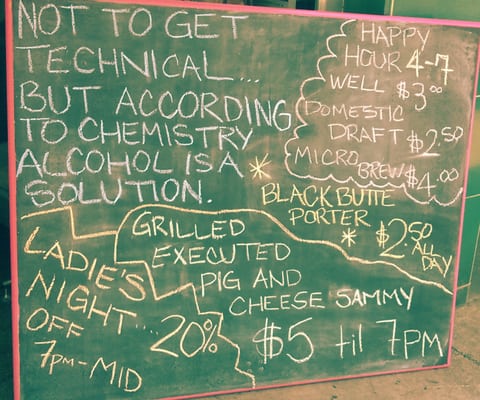 NOT TO GET
TECHNICAL...
BUT ACCORDING
TO CHEMISTRY
ALCOHOL IS A
SOLUTION.
HAPPY
HOUR 4-7
WELL $3.00
DOMESTIC
DRAFT $2.50
MICRO
BREW $4.00
* BLACK BUTTE
PORTER
* $2.50 ALL
DAY
GRILLED
EXECUTED
PIG AND
CHEESE SAMMY
$5 til 7PM
LADIE'S
NIGHT...
20%
OFF
7PM-MID